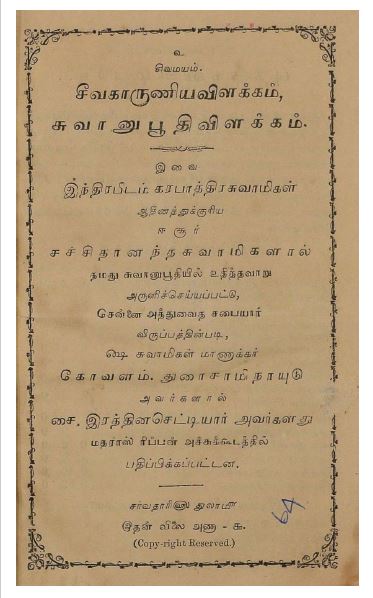 உ
சிவமயம்.
சீவகாருணியவிளக்கம்,
சுவானுபூதிவிளக்கம்.
இவை
இந்திரபிடம் கரபாத்திரசுவாமிகள்
ஆதீனத்துக்குரிய
ஈசூர்
சச்சிதானந்தசுவாமிகளால்
தமது சுவானுபூதியில் உதித்தவாறு
அருளிச்செய்யப்பட்டு,
சென்னை அத்துவைத சபையார்
விருப்பத்தின்படி,
ஷெ சுவாமிகள் மாணாக்கர்
கோவளம். துரைசாமிநாயுடு
அவர்களால்
சை. இரத்தினசெட்டியார் அவர்களது
மதராஸ் ரிப்பன் அச்சுக்கூடத்தில்
பதிப்பிக்கப்பட்டன.
சர்வதாரிஞ் துலாமீ
இதன் விலை அணா - சு.
(Copy-right Reserved.)
64